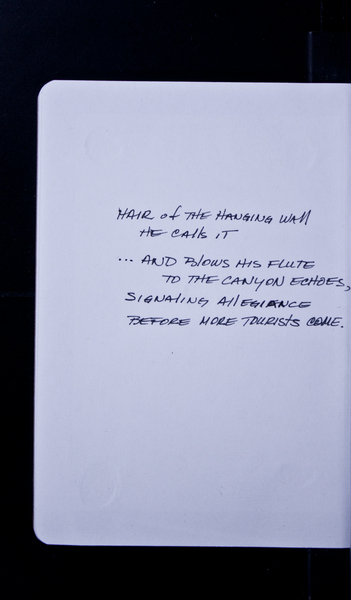 HAIR of THE HANGING WAll
HE CAlls iT
... AND BlOWS HIS FLUTE
TO THE CANYON ECHOES,
SIGNAliNG AllEGIANCE
BEFORE MORE TOURISTS COME.